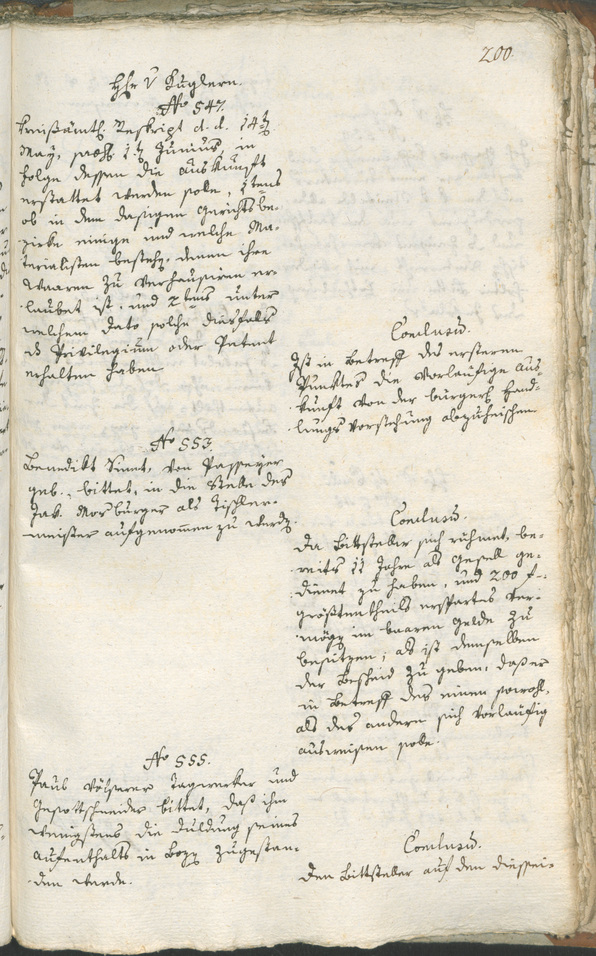 200.
H: v Kuglern.
No 547.
Kreißämtl. Reskript d. d. 14t
May, praes. 1t Junius, in
folge dessen die Auskunft
erstattet werden solle, 1tens
ob in dem dasigen Gerichtsbe-
zirke einige und welche Ma-
terialisten bestehen, denen ihre
Waaren zu verhausiren er-
laubet ist, und 2tens unter
welchem dato solche diesfalls
Privilegium oder Patent
erhalten haben
Conclusum.
Ist in Betreff des ersteren
Punktes die vorläufige Aus-
kunft von der bürgerl. Hand-
lungs Vorstehung abzuheischen
No 553.
Benedikt, von Passeyer
geb., bittet, in die Stelle des
Jak. Morburger als Tischler-
meister aufgenommen zu werden.
Conclusum.
Da Bittsteller sich rühmet, be-
reits 11 Jahre als Gesell ge-
dienet zu haben, und 200 f
größtentheils erspartes Ver-
mögen im baaren Gelde zu
besitzen; als ist demselben
der Bescheid zu geben, daß er
in Betreff des einen sowohl,
als des andern sich vorläufig
ausweisen solle.
No 555.
Paul Völserer Tagwerker und
Gesottschneider bittet, daß ihm
wenigstens die Duldung seines
Aufenthalts in Bozen zugestan-
den werde.
Conclusum.
Den Bittsteller auf den diessei-